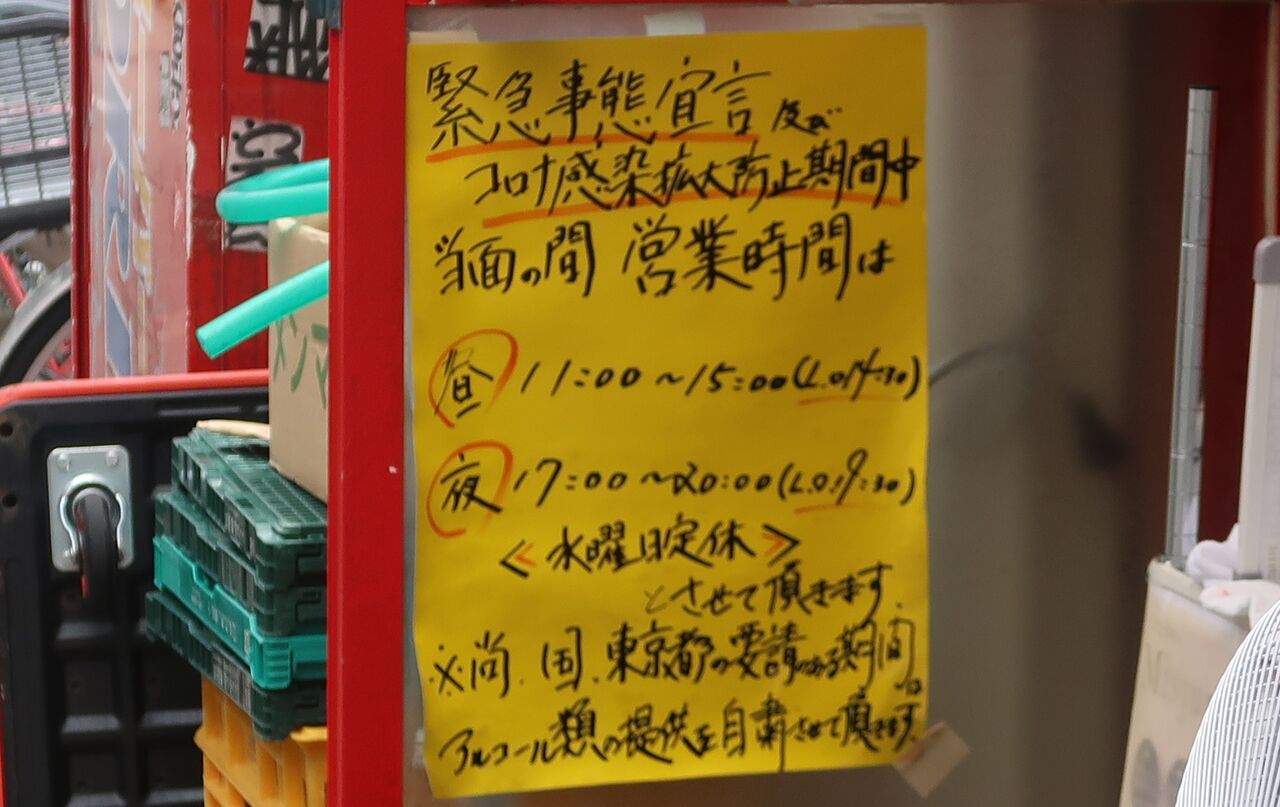 緊急事態宣言及び
コロナ感染拡大防止期間中
当面の間 営業時間は
昼 11:00～15:00(L.O.14:30)
夜 17:00～20:00(L.O.19:30)
≪水曜日定休≫
とさせて頂きます.
※尚.国.東京都の要請のある期間は
アルコール類の提供を自粛させて頂きます.
メンマ